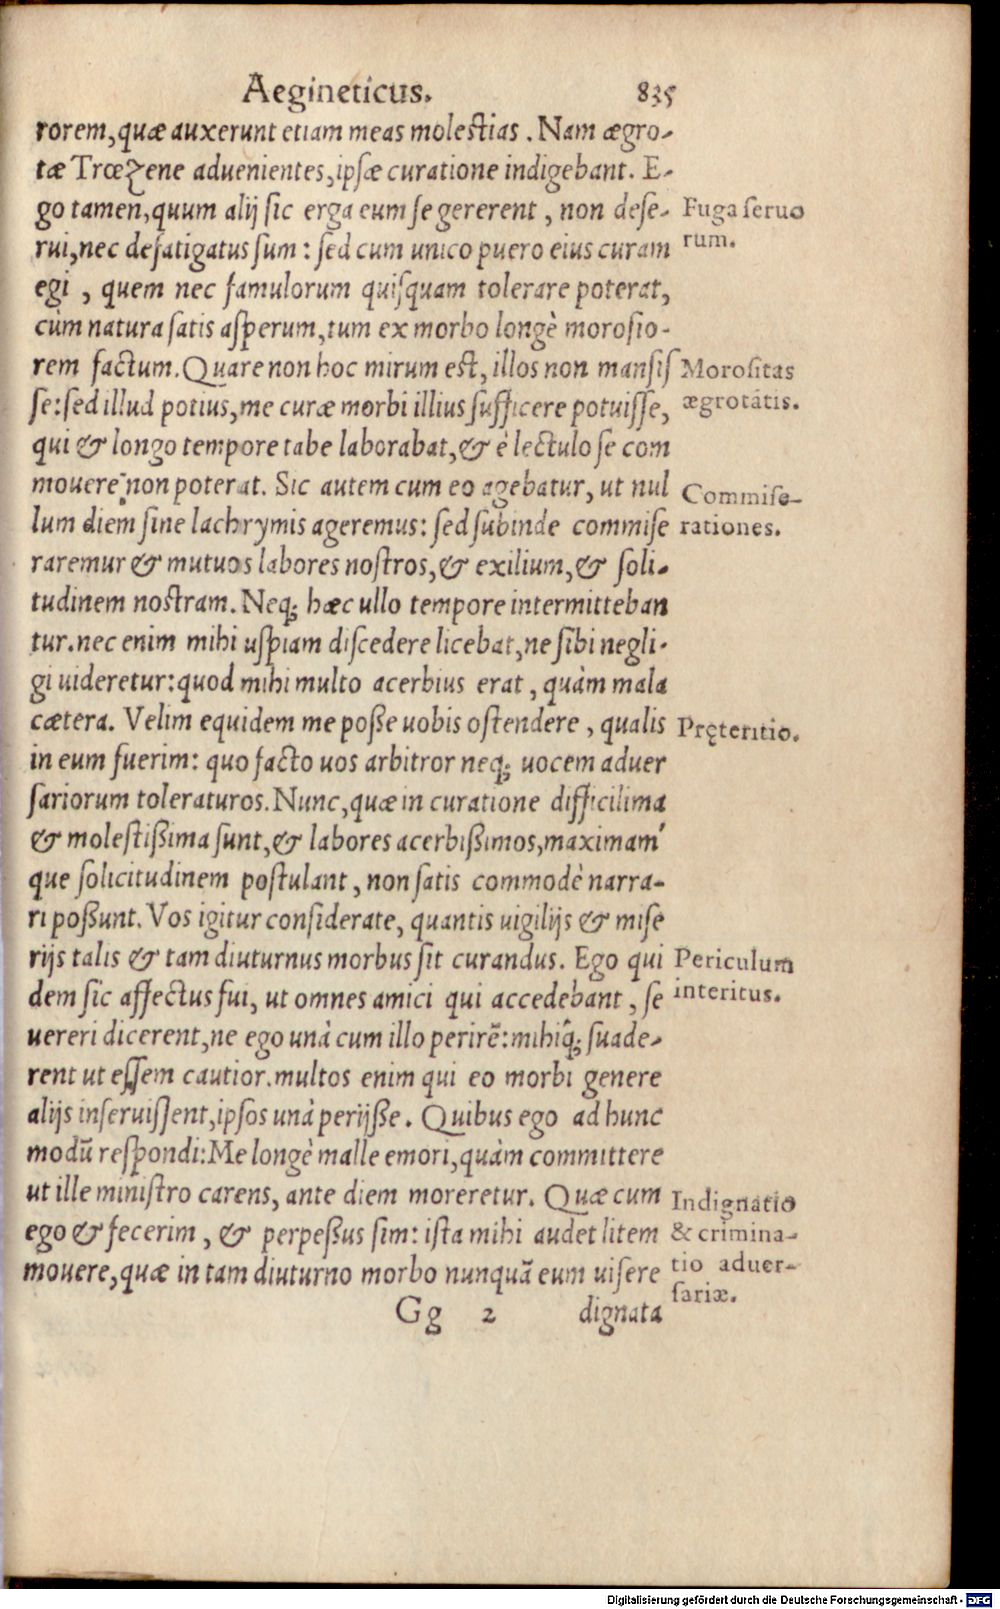 Aegineticus. 835
rorem, quæ auxerunt etiam meas molestias. Nam ægro-
tæ Trœzene aduenientes, ipsæ curatione indigebant. E-
go tamen, quum alij sic erga eum se gererent, non dese-
rui, nec defatigatus sum: sed cum unico puero eius curam
egi, quem nec famulorum quisquam tolerare poterat,
cùm natura satis asperum, tum ex morbo longè morosio-
rem factum. Quare non hoc mirum est, illos non mansis
se: sed illud potius, me curæ morbi illius sufficere potuisse,
qui & longo tempore tabe laborabat, & è lectulo se com
mouere non poterat. Sic autem cum eo agebatur, ut nul
lum diem sine lachrymis ageremus: sed subinde commise
raremur & mutuos labores nostros, & exilium, & soli-
tudinem nostram. Neq; hæc ullo tempore intermitteban
tur. nec enim mihi uspiam discedere licebat, ne sibi negli-
gi uideretur: quod mihi multo acerbius erat, quàm mala
cætera. Velim equidem me posse uobis ostendere, qualis
in eum fuerim: quo facto uos arbitror neq; uocem aduer
sariorum toleraturos. Nunc, quæ in curatione difficilima
& molestissima sunt, & labores acerbissimos, maximam'
que solicitudinem postulant, non satis commodè narra-
ri possunt. Vos igitur considerate, quantis uigilijs & mise
rijs talis & tam diuturnus morbus sit curandus. Ego qui
dem sic affectus fui, ut omnes amici qui accedebant, se
uereri dicerent, ne ego unà cum illo perirẽ: mihiq́; suade-
rent ut essem cautior. multos enim qui eo morbi genere
alijs inseruissent, ipsos unà perijsse. Quibus ego ad hunc
modũ respondi: Me longè malle emori, quàm committere
ut ille ministro carens, ante diem moreretur. Quæ cum
ego & fecerim, & perpessus sim: ista mihi audet litem
mouere, quæ in tam diuturno morbo nunquã eum uisere
Gg 2 dignata
Fuga seruo
rum.
Morositas
ægrotātis.
Commise-
rationes.
Pręteritio.
Periculum
interitus.
Indignatio
& crimina-
tio aduer-
sariæ.
Digitalisierung gefördert durch die Deutsche Forschungsgemeinschaft - DFG